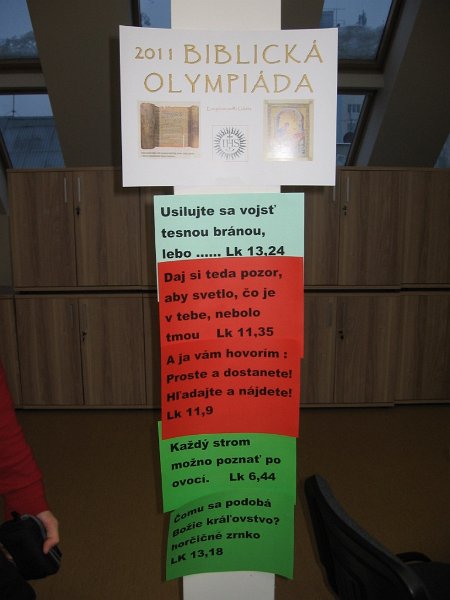 2011 BIBLICKÁ
OLYMPIÁDA
IHS
Usilujte sa vojsť
tesnou bránou,
lebo ...... Lk 13,24
Daj si teda pozor,
aby svetlo, čo je
v tebe, nebolo
tmou Lk 11,35
A ja vám hovorím :
Proste a dostanete!
Hľadajte a nájdete!
Lk 11,9
Každý strom
možno poznať po
ovocí. Lk 6,44
Čomu sa podobá
Božie kráľovstvo?
horčičné zrnko
LK 13,18